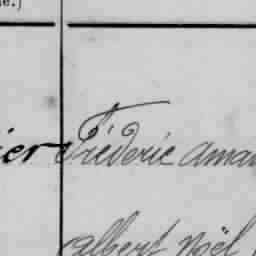 ier Fréderic
albert Noël